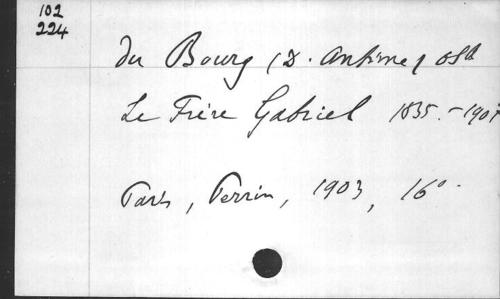 102
224
du Bourg (D. Antime) OSB
Le Frère Gabriel 1835.-190
Paris, Perrin, 1903, 16°.